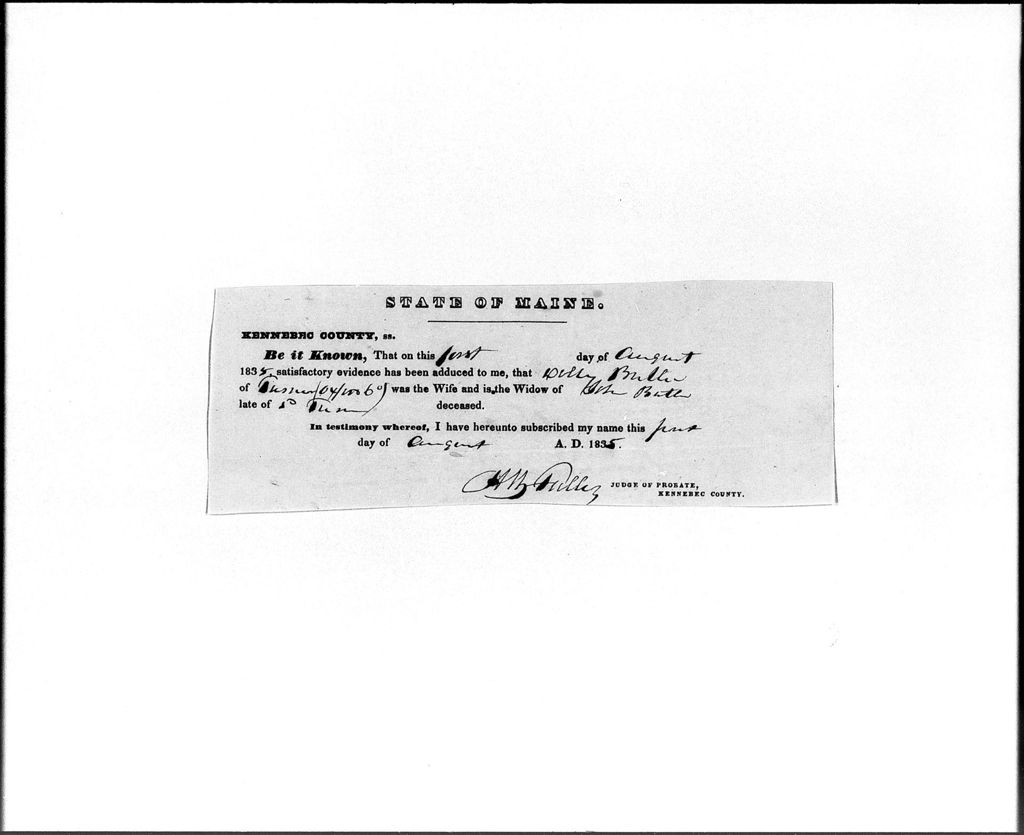 STATE OF MAINE.
KENNEBEC COUNTY, ss.
Be it Known, That on this first day of August
1835, satisfactory evidence has been adduced to me, that Butler
of Turner was the Wife and is the Widow of Butler
late of sd Turner deceased.
In testimony whereof, I have hereunto subscribed my name this first
day of August A. D. 1835.
JUDGE OF PROBATE,
KENNEBEC COUNTY.